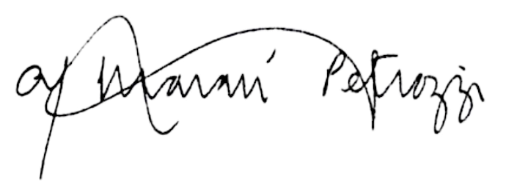 Marani Petrozzi